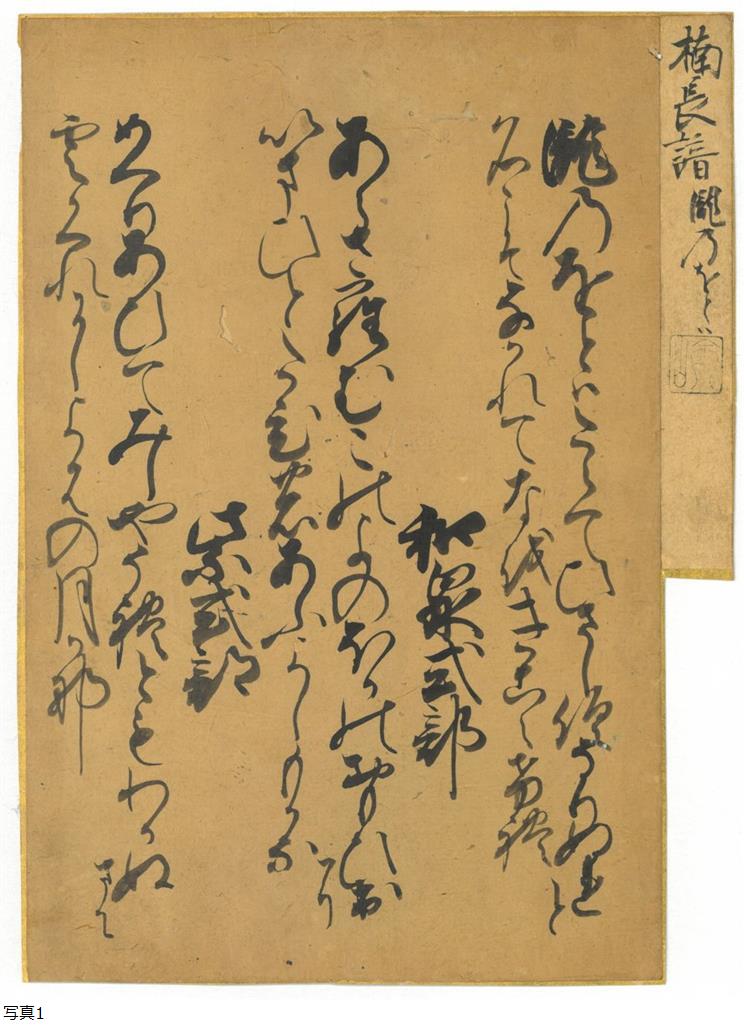 楠長諳 瀧乃をとハ
瀧乃をとハたえてひさしくなりぬれと
名こそなかれてなをきこえけれ
和泉式部
あらさらむこのよのほかのおもひ出
いまひとたひのあふよしもかな
紫式部
めくりあひてみしやそれともわかぬ
まに
雲かくれにしよはの月かな
写真1